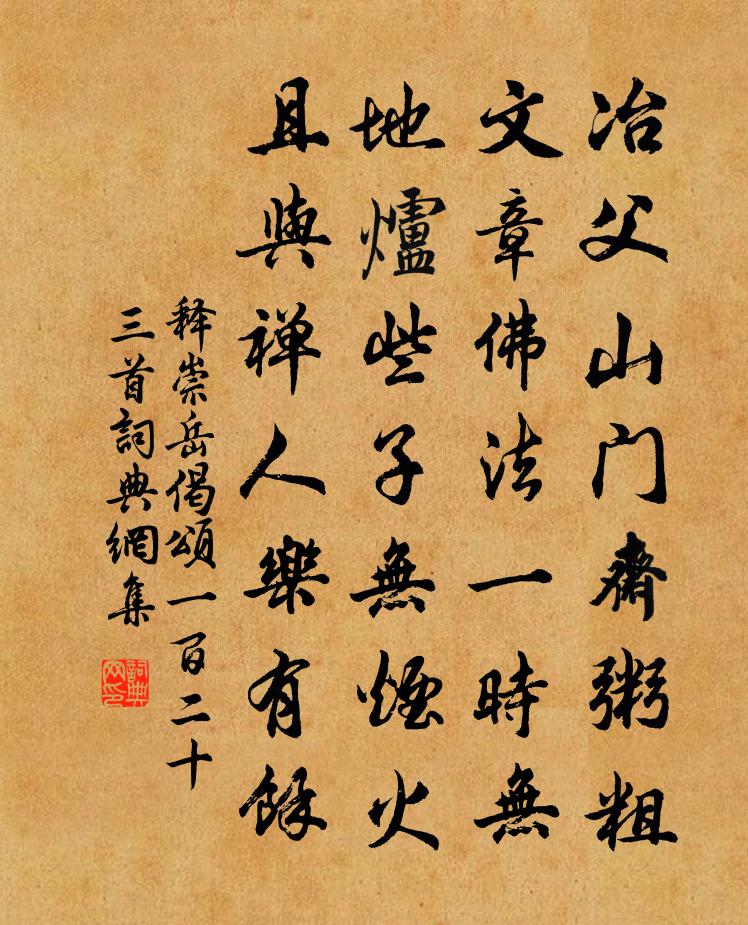 冶父山门齋粥粗
文章佛法一時無
地爐些子無煙火
且與禅人樂有餘
释崇岳偈頌一百二十
三首詞典網集
詞典网印